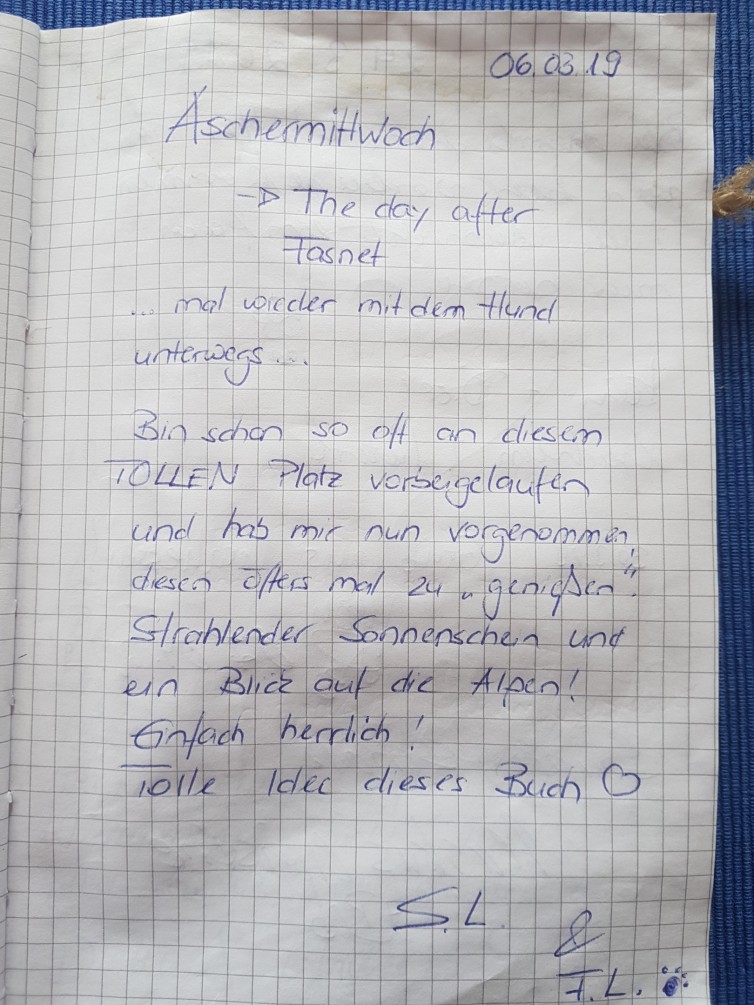 06.03.19
Aschermittwoch
-> The day after
Fasnet
... mal wieder mit dem Hund
unterwegs...
Bin schon so oft an diesem
TOLLEN Platz vorbeigelaufen
und hab mir nun vorgenommen,
diesen öfters mal zu „genißen“!
Strahlender Sonnenschein und
ein Blick auf die Alpen!
Einfach herrlich!
Tolle Idee dieses Buch ♡
S.L.
&
F.L.